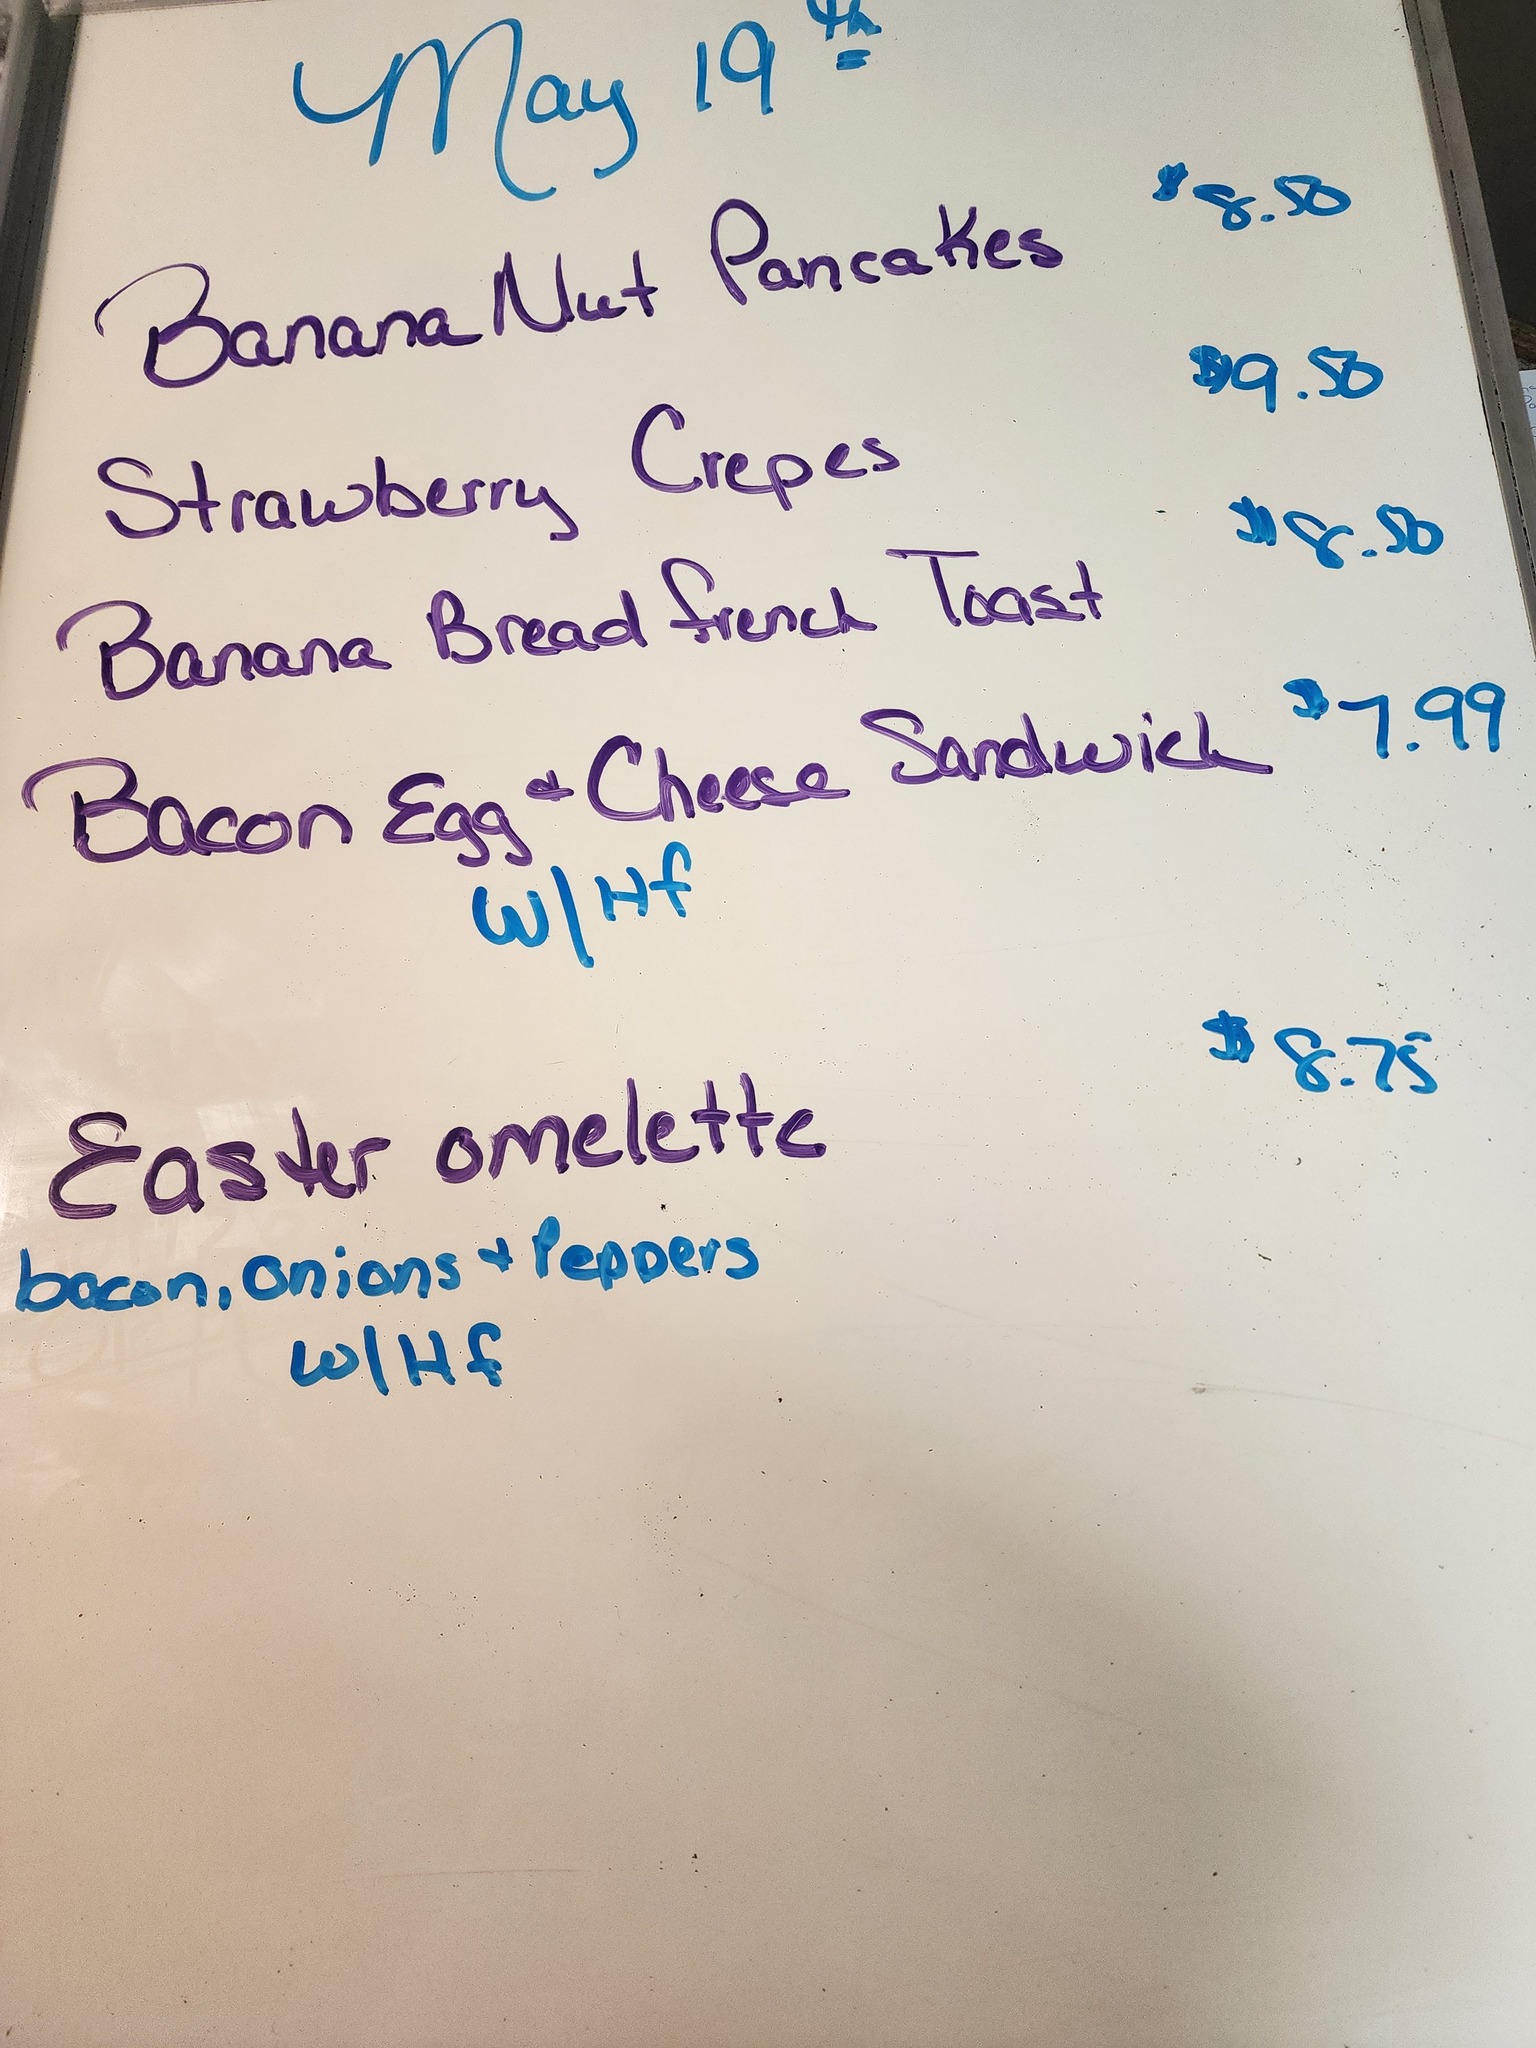 May 19th
Banana Nut Pancakes $8.50
Strawberry Crepes $9.50
Banana Bread french Toast $8.50
Bacon Egg & Cheese Sandwich $7.99
W/Hf
Easter omelette $8.75
bacon, onions & Peppers
W/Hf